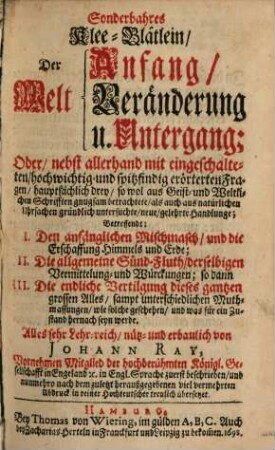 Sonderbahres
Klee-Blätlein/
Der
Welt
Anfang/
Veränderung
u. Untergang;
Oder/ nebst allerhand mit eingeschalte-
ten/hochwichtig-und spitzfindig erörterten Fra-
gen/ hauptsächlich drey/ so wol aus Geist- und Weltli-
chen Schrifften gnugsam betrachtete/als auch aus natürlichen
Uhrsachen gründlich untersuchte/neue/gelehrte Handlunge;
Betreffende:
I. Den anfänglichen Mischmasch/ und die
Erschaffung Himmels und Erde;
II. Die allgemeine Sünd-Fluth/derselbigen
Vermittelung/ und Würckungen; so dann
III. Die endliche Vertilgung dieses gantzen
grossen Alles/ sampt unterschiedlichen Muth-
massungen/ wie solche geschehen/ und was für ein Zu-
stand hernach seyn werde.
Alles sehr Lehr-reich/ nütz- und erbaulich von
JOHANN RAY,
Vornehmen Mitglied der hochberühmten Königl. Ge-
sellschafft in Engeland ꝛc. in Engl. Sprache zuerst beschrieben/und
nunmehro nach dem zuletzt herausgegebenen viel vermehrten
Abdruck in reiner Hochteutscher treulich übersetzet.
HAMBURG,
Bey Thomas von Wiering, im gülden A, B, C. Auch
bey Zacharias Herteln in Franckfurt und Leipzig zu bekomen. 1698.